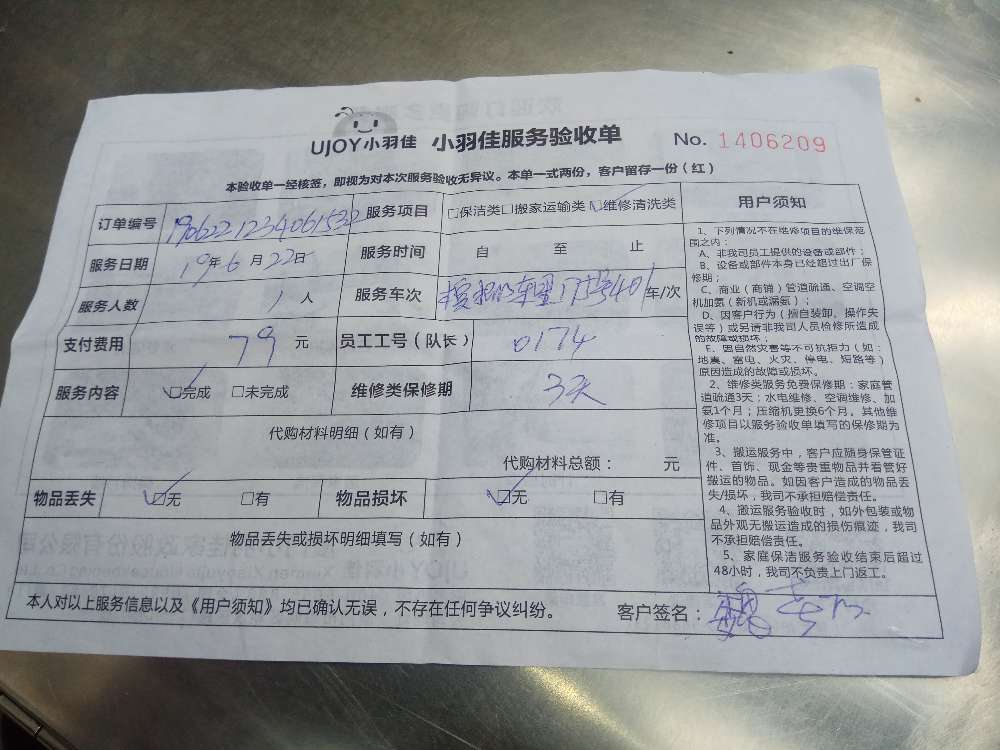 UJOY小羽佳 小羽佳服务验收单 No. 1406209
本验收单一经核签，即视为对本次服务验收无异议。本单一式两份，客户留存一份（红）
订单编号 190622123406153 服务项目 □保洁类□搬家运输类☑维修清洗类
服务日期 19年6月22日 服务时间 自 至 止
服务人数 1人 服务车次 401 车/次
支付费用 79 元 员工工号（队长） 0174
服务内容 ☑完成 □未完成 维修类保修期 3天
代购材料明细（如有）
代购材料总额： 元
物品丢失 ☑无 □有 物品损坏 ☑无 □有
物品丢失或损坏明细填写（如有）
用户须知
1、下列情况不在维修项目的维保范
围之内：
A、非我司员工提供的设备或部件；
B、设备或部件本身已经超过出厂保
修期；
C、商业（商铺）管道疏通、空调空
机加氨（新机或漏氨）；
D、因客户行为（擅自装卸、操作失
误等）或另请非我司人员检修所造成
的故障或损坏；
E、因自然灾害等不可抗拒力（如：
地震、雷电、火灾、停电、短路等）
原因造成的故障或损坏。
2、维修类服务免费保修期：家庭管
道疏通3天；水电维修、空调维修、加
氨1个月；压缩机更换6个月。其他维
修项目以服务验收单填写的保修期为
准。
3、搬运服务中，客户应随身保管证
件、首饰、现金等贵重物品并看管好
搬运的物品。如因客户造成的物品丢
失/损坏，我司不承担赔偿责任。
4、搬运服务验收时，如外包装或物
品外观无搬运造成的损伤痕迹，我司
不承担赔偿责任。
5、家庭保洁服务验收结束后超过
48小时，我司不负责上门返工。
本人对以上服务信息以及《用户须知》均已确认无误，不存在任何争议纠纷。 客户签名：